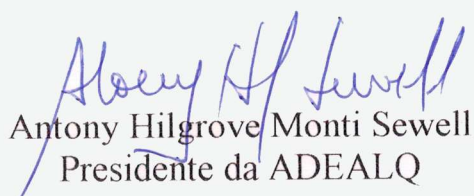 Antony Hilgrove Monti Sewell
Presidente da ADEALQ